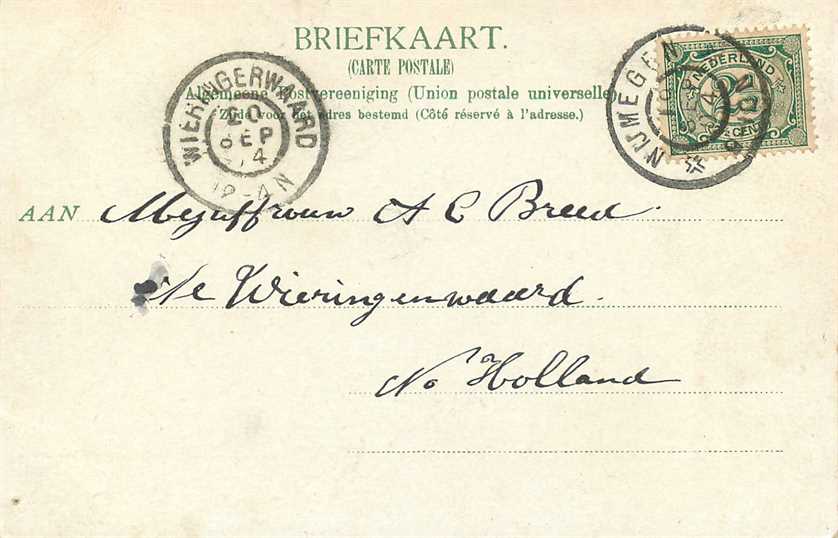 BRIEFKAART.
(CARTE POSTALE)
Algemeene Postvereeniging (Union postale universelle)
Zijde voor het adres bestemd (Côté réservé à l'adresse.)
NIJMEGEN
NEDERLAND
CENT
WIERINGERWAARD
SEP
AAN Mejuffrouw A C Breed.
Te Wieringerwaard.
No Holland